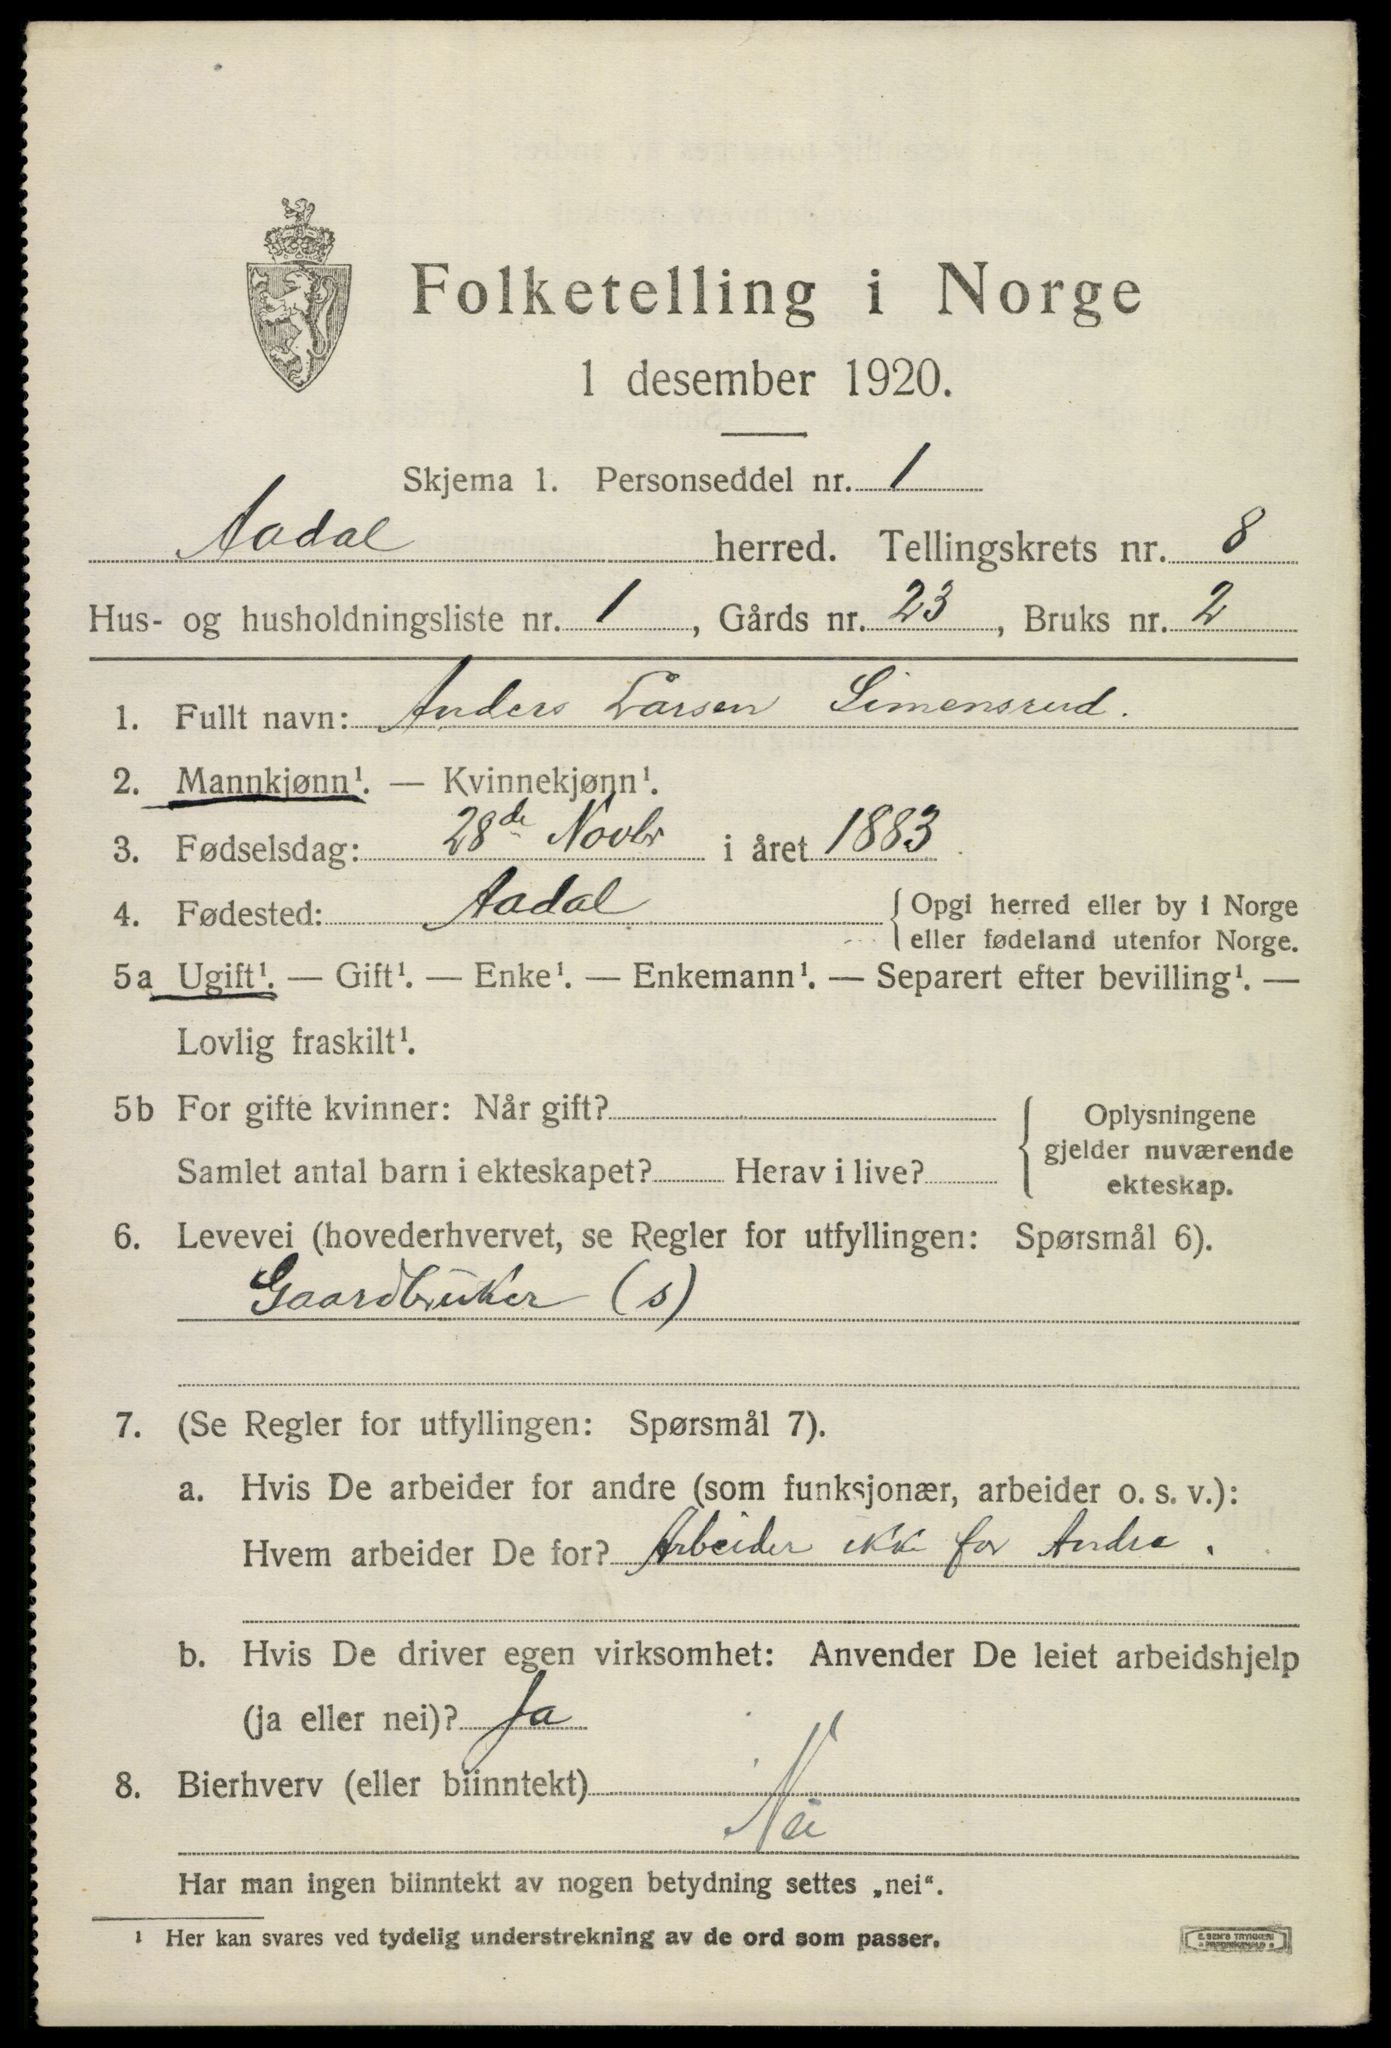 Folketelling i Norge
1 desember 1920.
Skjema 1. Personseddel nr. 1
Aadal herred. Tellingskrets nr. 8
Hus- og husholdningsliste nr. 1, Gårds nr. 23, Bruks nr. 2
1. Fullt navn: Anders Larsen Simensrud.
2. Mannkjønn¹. — Kvinnekjønn¹.
3. Fødselsdag: 28de Novbr i året 1883.
4. Fødested: Aadal { Opgi herred eller by i Norge
eller fødeland utenfor Norge.
5a Ugift¹. — Gift¹. — Enke¹. — Enkemann¹. — Separert efter bevilling¹. —
Lovlig fraskilt¹.
5b For gifte kvinner: Når gift? { Oplysningene
gjelder nuværende
Samlet antal barn i ekteskapet? Herav i live? ekteskap.
6. Levevei (hovederhvervet, se Regler for utfyllingen: Spørsmål 6).
Gaardbruker (s)
7. (Se Regler for utfyllingen: Spørsmål 7).
a. Hvis De arbeider for andre (som funksjonær, arbeider o. s. v.):
Hvem arbeider De for? Arbeider ikke for Andre.
b. Hvis De driver egen virksomhet: Anvender De leiet arbeidshjelp
(ja eller nei)? Ja
8. Bierhverv (eller biinntekt)
Nei
Har man ingen biinntekt av nogen betydning settes „nei“.
¹ Her kan svares ved tydelig understrekning av de ord som passer.